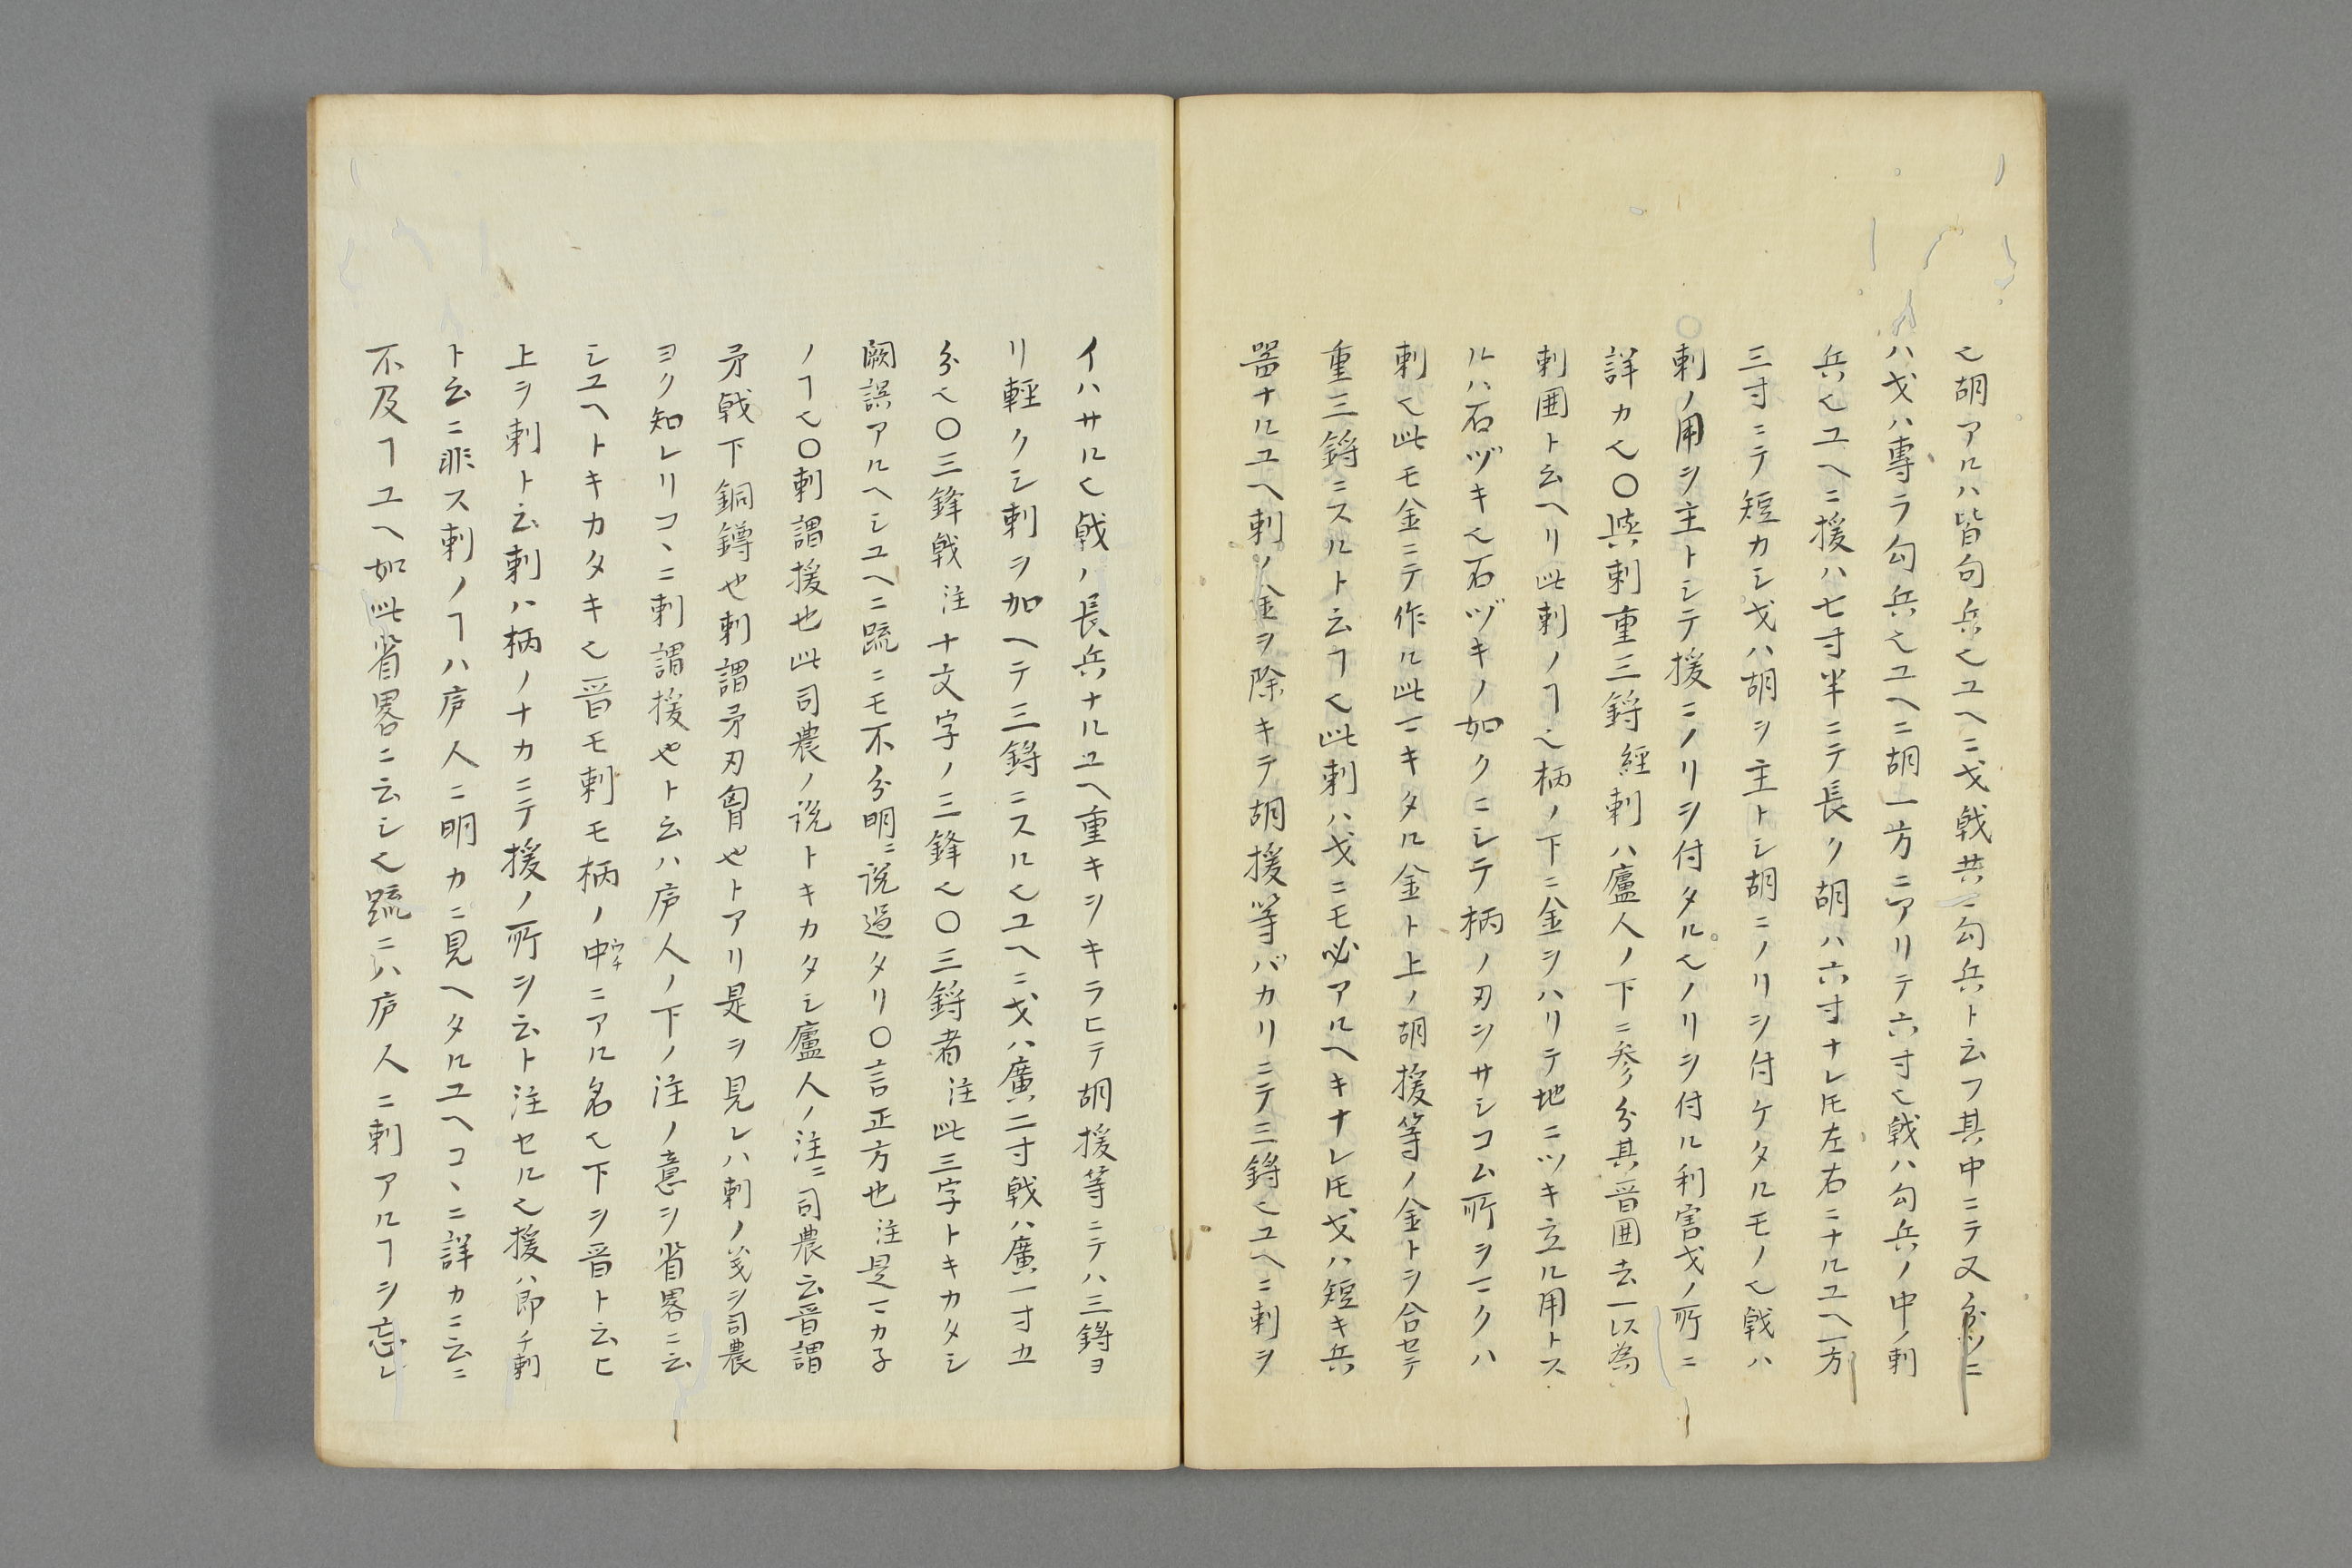 也胡アルハ皆句兵也ユヘニ戈戟共ニ勾兵ト云フ其中ニテ又分ツニ
ハ戈ハ專ラ勾兵也ユヘニ胡一方ニアリテ六寸也戟ハ勾兵ノ中ノ刺
兵也ユヘニ援ハ七寸半ニテ長ク胡ハ六寸ナレ𪜈左右ニナルユヘ一方
三寸ニテ短カシ戈ハ胡ヲ主トシ胡ニノリヲ付ケタルモノ也戟ハ
〇刺ノ用ヲ主トシテ援ニノリヲ付タル也ノリヲ付ル利害戈ノ所ニ
詳カ也〇與刺重三鋝 經刺ハ廬人ノ下ニ参分其晋囲去一以為
刺囲ト云ヘリ此刺ノヿ也柄ノ下ニ金ヲハリテ地ニツキ立ル用トス
ルハ石ヅキ也石ヅキノ如クニシテ柄ノ刃ヲサシコム所ヲマクハ
刺也此モ金ニテ作ル此マキタル金ト上ノ胡援等ノ金トヲ合セテ
重三鋝ニスルト云ヿ也此刺ハ戈ニモ必アルヘキナレ𪜈戈ハ短キ兵
噐ナルユヘ刺ノ金ヲ除キテ胡援等バカリニテ三鋝也ユヘニ刺ヲ
イハサル也戟ノ長兵ナルユヘ重キヲキラヒテ胡援等ニテハ三鋝ヨ
リ輕クシ刺ヲ加ヘテ三鋝ニスル也ユヘニ戈ハ廣二寸戟ハ廣一寸五
分也〇三鋒戟 注 十文字ノ三鋒也〇三鋝者 注 此三字トキカタシ
闕誤アルヘシユヘニ疏ニモ不分明ニ説過タリ〇言正方也 注 是マカ子
ノヿ也〇刺謂援也此司農ノ説トキカタシ廬人ノ注ニ司農云晋謂
矛戟下銅鐏也刺謂矛刃胷也トアリ是ヲ見レハ刺ノ義ヲ司農
ヨク知レリコヽニ刺謂援也ト云ハ庐人ノ下ノ注ノ意ヲ省畧ニ云
シユヘトキカタキ也晋モ刺モ柄ノ中ニアル名也下ヲ晋ト云ヒ
上ヲ刺ト云刺ハ柄ノナカニテ援ノ所ヲ云ト注セル也援ハ即チ刺
ト云ニ非ス刺ノヿハ庐人ニ明カニ見ヘタルユヘコヽニ詳カニ云ニ
不及ヿユヘ如此省畧ニ云シ也疏ニハ庐人ニ刺アルヿヲ忘レ